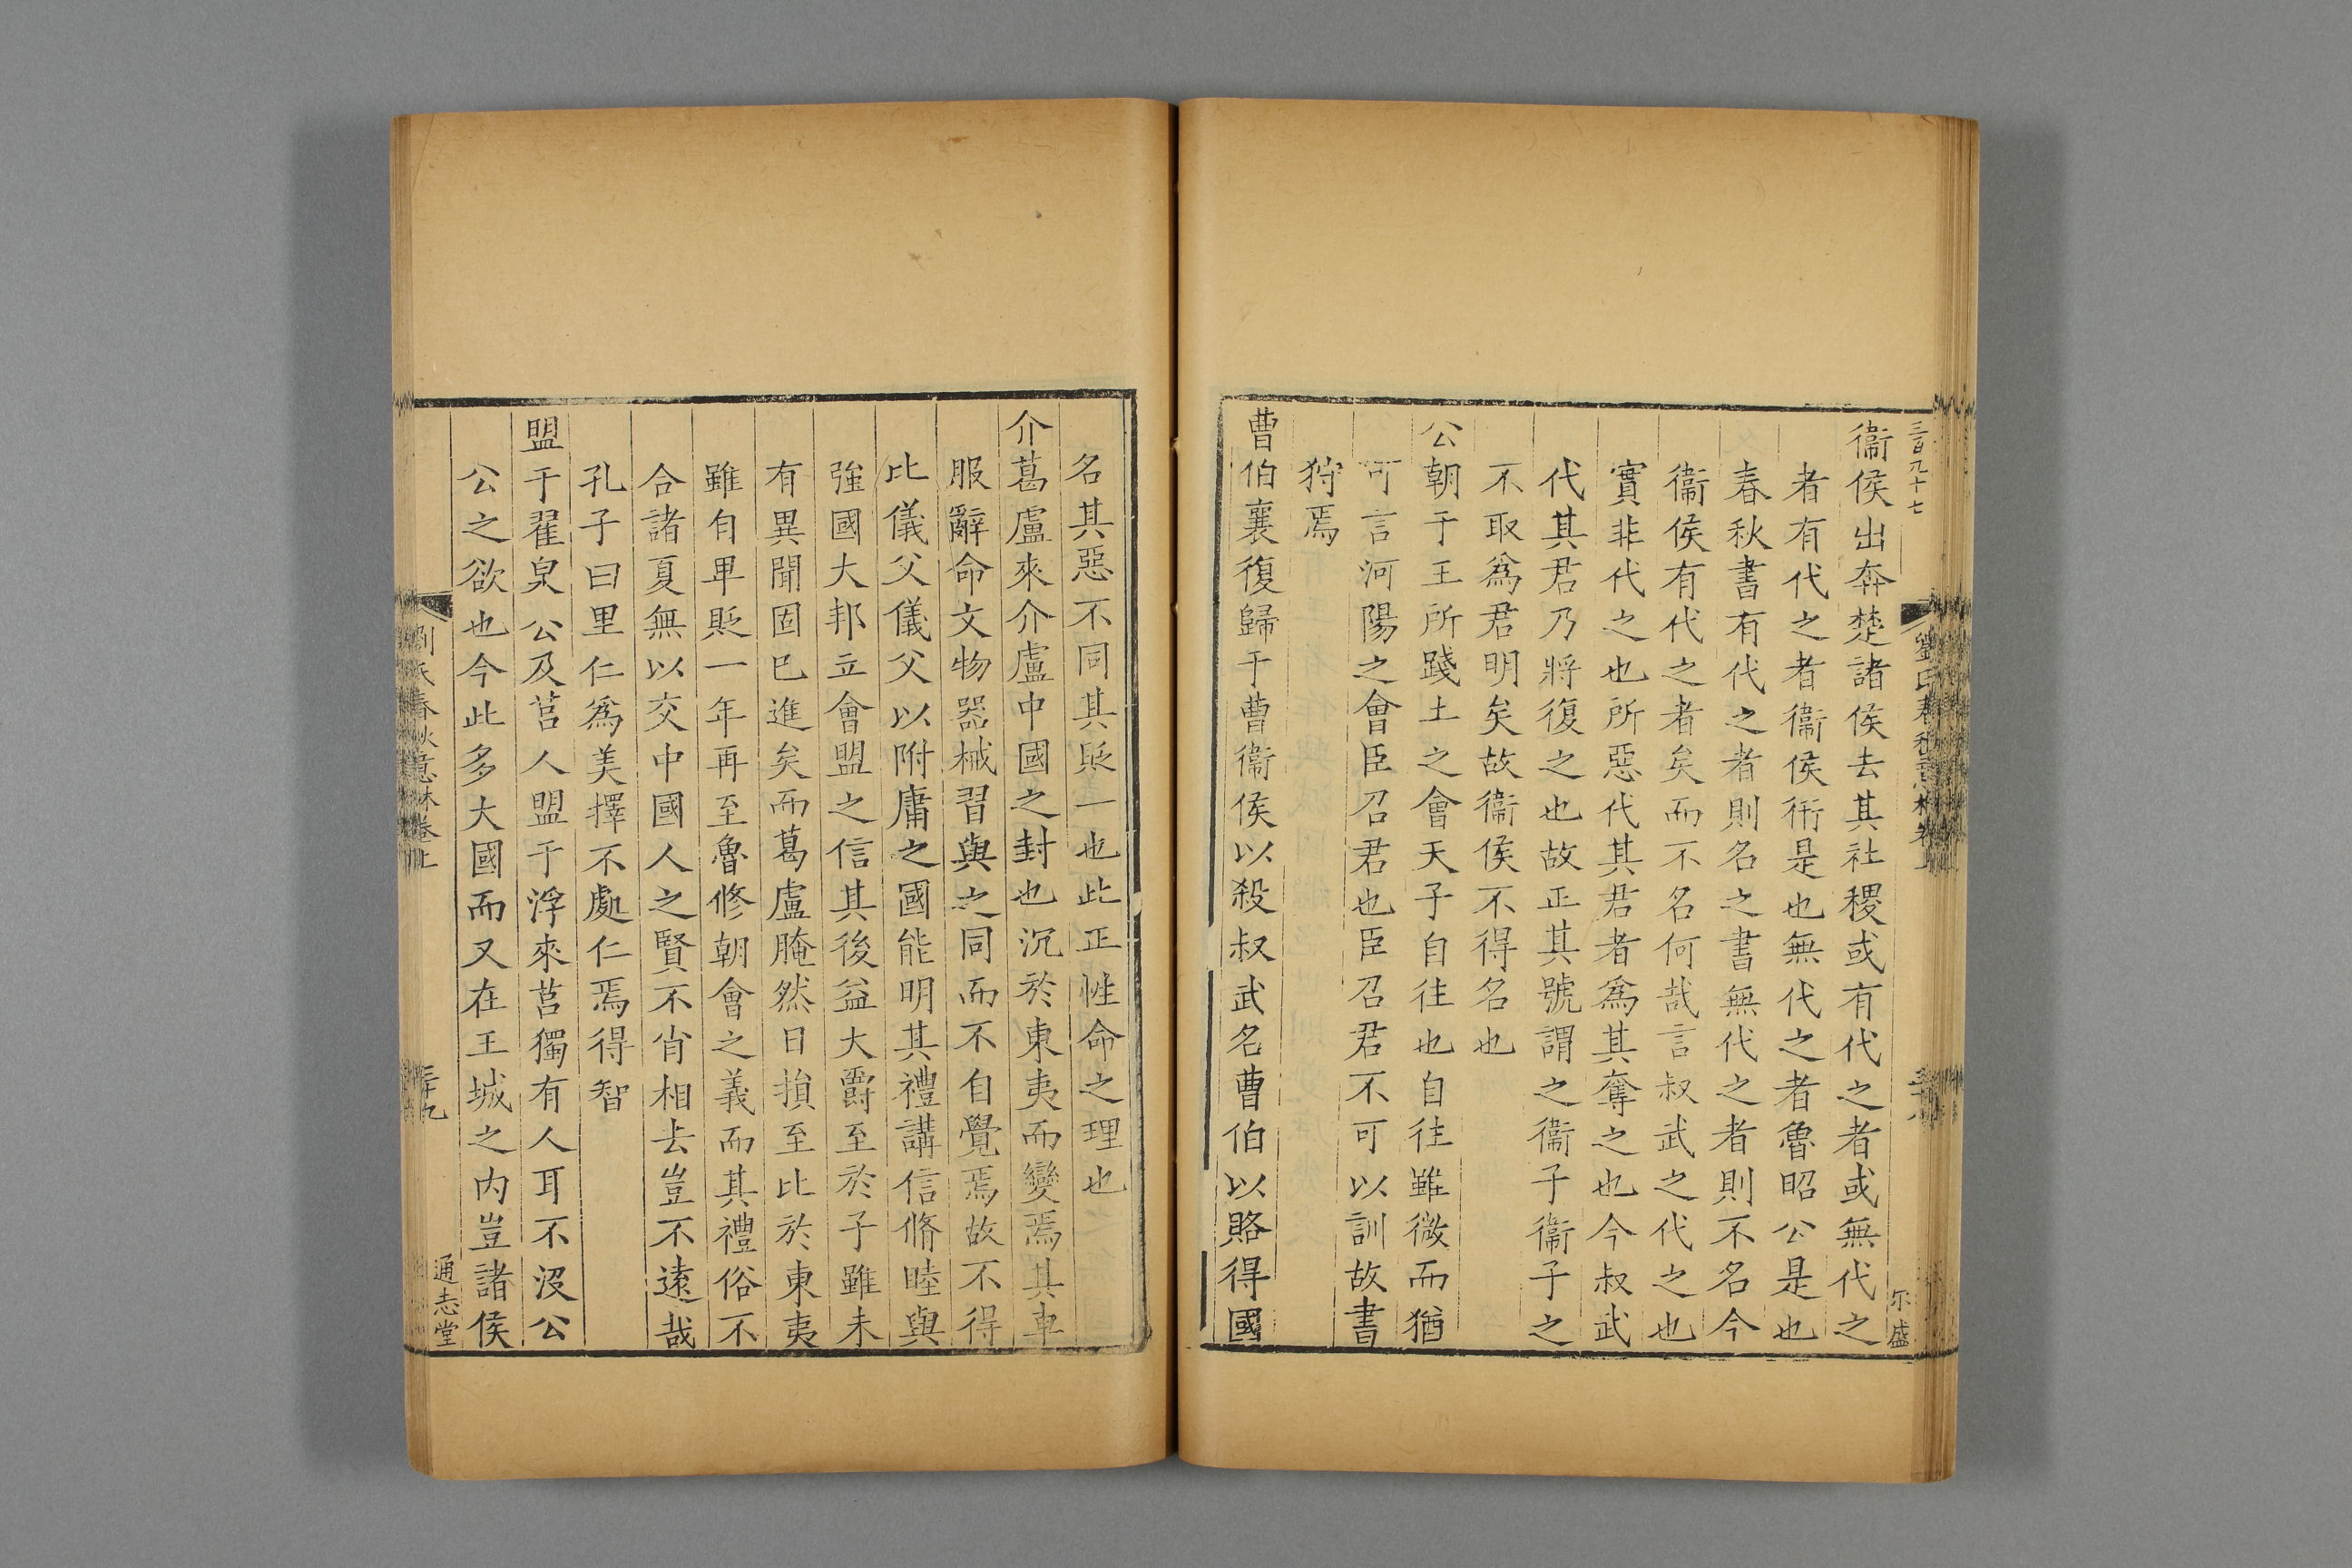 三百九十七
衞侯出奔楚諸侯去其社稷或有代之者或無代之
者有代之者衞侯衎是也無代之者魯昭公是也
春秋書有代之者則名之書無代之者則不名今
衞侯有代之者矣而不名何哉言叔武之代之也
實非代之也所惡代其君者爲其奪之也今叔武
代其君乃將復之也故正其號謂之衞子衞子之
不取爲君明矣故衞侯不得名也
公朝于王所踐土之會天子自往也自往雖微而猶
可言河陽之會臣召君也臣召君不可以訓故書
狩焉
曹伯襄復歸于曹衞侯以殺叔武名曹伯以賂得國
名其惡不同其貶一也此正性命之理也
介葛盧來介盧中國之封也沉於東夷而變焉其車
服辭命文物器械習與之同而不自覺焉故不得
比儀父儀父以附庸之國能明其禮講信脩睦與
強國大邦立會盟之信其後益大爵至於子雖未
有異聞固已進矣而葛盧腌然日損至比於東夷
雖自卑貶一年再至魯修朝會之義而其禮俗不
合諸夏無以交中國人之賢不肖相去豈不遠哉
孔子曰里仁爲美擇不處仁焉得智
盟于翟泉公及莒人盟于浮來莒獨有人耳不沒公
公之欲也今此多大國而又在王城之內豈諸侯
劉氏春秋意林卷上
三十九
通志堂